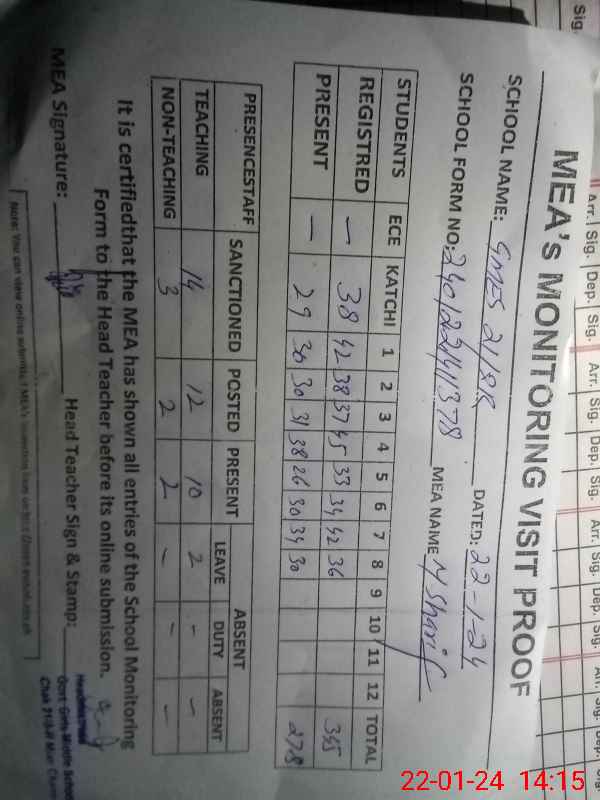 MEA's MONITORING VISIT PROOF
SCHOOL NAME: GMES 21/8R DATED: 22-1-24
SCHOOL FORM NO: MEA NAME M Sharif
STUDENTS ECE KATCHI 1 2 3 4 5 6 7 8 9 10 11 12 TOTAL
REGISTRED — 38 42 38 37 45 33 34 42 36 345
PRESENT — 29 30 30 31 38 26 30 34 30 278
PRESENCESTAFF SANCTIONED POSTED PRESENT ABSENT
LEAVE DUTY ABSENT
TEACHING 14 12 10 2 - -
NON-TEACHING 3 2 2 - - -
It is certifiedthat the MEA has shown all entries of the School Monitoring
Form to the Head Teacher before its online submission.
MEA Signature: Head Teacher Sign & Stamp:
Headmistress
Govt. Girls Middle School
Chak 21/8-R Mian Channu
Note: You can view online
Arr. Sig. Dep. Sig. Arr. Sig. Dep. Sig. Arr. Sig. Dep. Sig.
Sig.
22-01-24 14:15